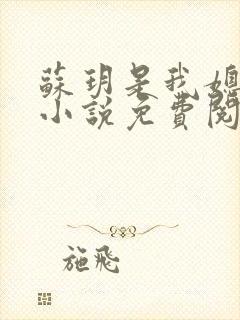 蘇玥是我媳
小說免費閱
施飛